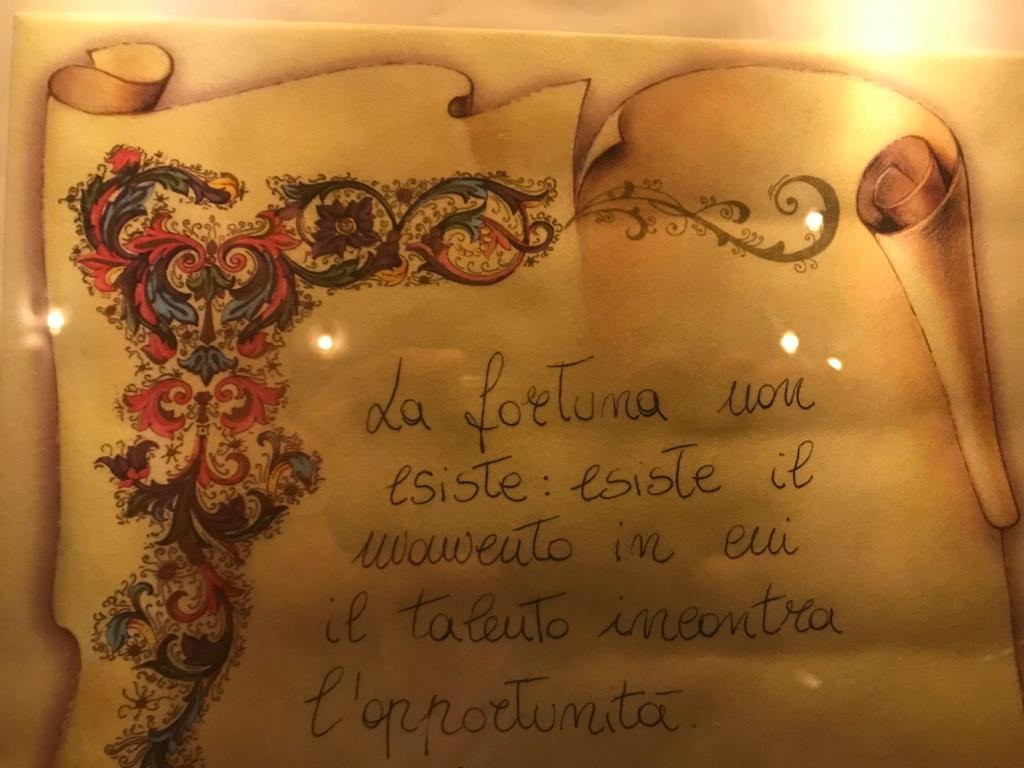 La fortuna non
esiste: esiste il
momento in cui
il talento incontra
l'opportunità.